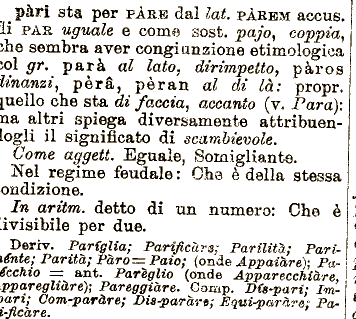 pàri sta per PÀRE dal lat. PÀREM accus.
di PAR uguale e come sost. pajo, coppia,
che sembra aver congiunzione etimologica
col gr. parà al lato, dirimpetto, pàros
dinanzi, pèrâ, pèran al di là: propr.
quello che sta di faccia, accanto (v. Para):
ma altri spiega diversamente attribuen-
dogli il significato di scambievole.
Come aggett. Eguale, Somigliante.
Nel regime feudale: Che è della stessa
condizione.
In aritm. detto di un numero: Che è
divisibile per due.
Deriv. Pariglia; Parificàre; Parilità; Pari-
ménte; Parità; Pàro=Paio; (onde Appaiàre); Pa-
récchio = ant. Paréglio (onde Apparecchiàre,
Appareglìàre); Pareggiàre. Comp. Dis-pari; Im-
pari; Com-paràre; Dis-paràre; Equi-paràre; Pa-
ri-ficàre.